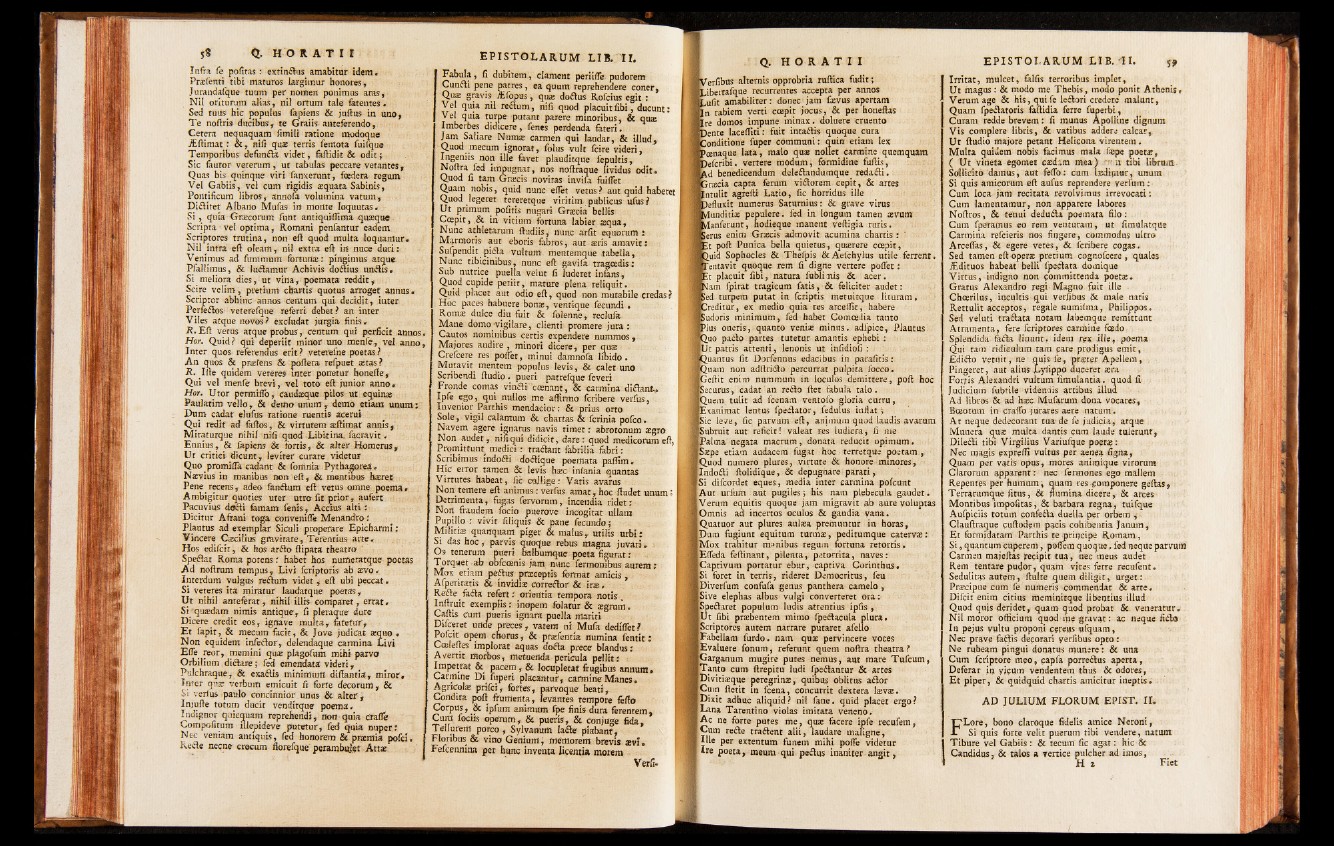 58 Q. HORATII
Infra se positas : extinctus amabitur idem.
Præsenti tibi maturos largimur honores,
Jurandasque tuum per nomen ponimus aras,
Nil oriturum alias, nil ortum tale fatentes.
Sed tuus hic populus sapiens & justus in uno,
Te nostris ducibus, te Graiis anteferendo,
Cetera nequaquam simili ratione modoque
Æstimat : &, nisi quæ terris semota suisque
Temporibus defuncta videt, fastidit & odit ;
Sic fautor veterum, ut tabulas peccare vetantes,
Quas bis quinque viri sanxerunt, fœdera regum
Vel Gabiis, vel cum rigidis æquata Sabinis,
Pontificum libros, annosa volumina vatum,
Dictitet Albano Musas in monte loquutas.
Si, quia Græcorum sunt antiquissima quæque
Scripta vel optima, Romani pensantur eadem
Scriptores trutina, non est quod multa loquamur.
Nil intra est oleam, nil extra est in nuce duri :
Venimus ad summum fortunæ : pingimus atque
Psallimus, & luctamur Achivis doctius unctis.
Si meliora dies, ut vina, poemata reddit,
Scire velim, pretium chartis quotus arroget annus.
Scriptor abhinc annos centum qui decidit, inter
Perfectos veteresque referri debet ? an inter
Viles atque novos ? excludat jurgia finis.
R. Est vetus atque probus, centum qui perficit annos.
Hor. Quid ? qui deperiit minor uno mense, vel anno,
Inter quos referendus erit ? veteresne poetas ?
An quos & præsens & postera respuet ætas ?
R. Iste quidem veteres inter ponetur honeste,
Qui vel mense brevi, vel toto est junior anno.
Hor. Utor permisso, caudæque pilos ut equinæ
Paulatim vello, & demo unum, demo etiam unum :
Dum cadat elusus ratione ruentis acervi
Qui redit ad fastos, & virtutem æstimat annis,
Miraturque nihil nisi quod Libitina sacravit.
Ennius, & sapiens & fortis, & alter Homerus,
Ut critici dicunt, leviter curare videtur
Quo promissa cadant & somnia Pythagorea.
Nævius in manibus non est, & mentibus hæret
Pene recens, adeo sanctum est vetus omne poema.
Ambigitur quoties uter utro sit prior, aufert
Pacuvius docti famam senis, Accius alti :
Dicitur Afrani toga convenisse Menandro :
Plautus ad exemplar Siculi properare Epicharmi :
Vincere Cæcilius gravitate, Terentius arte.
Hos ediscit, & hos arcto stipata theatro
Spectat Roma potens : habet hos numeratque poetas
Ad nostrum tempus, Livi scriptoris ab ævo.
Interdum vulgus rectum videt, est ubi peccat.
Si veteres ita miratur laudatque poetas,
Ut nihil anteferat, nihil illis comparet, errat.
Si quædam nimis antique, si pleraque dure
Dicere credit eos, ignave multa, fatetur,
Et sapit, & mecum facit, & Jove judicat æquo.
Non equidem insector, delendaque carmina Livi
Esse reor, memini quæ plagosum mihi parvo
Orbilium dictare ; sed emendata videri,
Pulchraque, & exactis minimum distantia, miror.
Inter quæ verbum emicuit si forte decorum, &
Si versus paulo concinnior unus & alter,
Injuste totum ducit venditque poema.
Indignor quicquam reprehendi, non quia crasse
Compositum illepideve putetur, sed quia nuper :
Nec veniam antiquis, sed honorem & præmia posci.
Recte necne crocum floresque perambulet Attæ
EPISTOLARUM LIB. II.
Fabula, si dubitem, clament periisse pudorem
Cuncti pene patres, ea quum reprehendere coner,
Quæ gravis Æsopus, quæ doctus Roscius egit :
Vel quia nil rectum, nisi quod placuit sibi, ducunt :
Vel quia turpe putant parere minoribus, & quæ
Imberbes didicere, senes perdenda fateri.
Jam Saliare Numæ carmen qui laudat, & illud,
Quod mecum ignorat, solus vult scire videri,
Ingeniis non ille favet plauditque sepultis,
Nostra sed impugnat, nos nostraque lividus odit.
Quod si tam Græcis novitas invisa fuisset
Quam nobis, quid nunc esset vetus ? aut quid haberet
Quod legeret tereretque viritim publicus usus ?
Ut primum positis nugari Græcia bellis
Cœpit, & in vitium fortuna labier æqua,
Nunc athletarum studiis, nunc arsit equorum :
Marmoris aut eboris fabros, aut æris amavit :
Suspendit picta vultum mentemque tabella,
Nunc tibicinibus, nunc est gavisa tragœdis :
Sub nutrice puella velut si luderet infans,
Quod cupide petiit, mature plena reliquit.
Quid placet aut odio est, quod non mutabile credas ?
Hoc paces habuere bonæ, ventique secundi.
Romæ dulce diu fuit & solenne, reclusa
Mane domo vigilare, clienti promere jura :
Cautos nominibus certis expendere nummos,
Majores audire, minori dicere, per quæ
Crescere res posset, minui damnosa libido.
Mutavit mentem populus levis, & calet uno
Scribendi studio. pueri patresque severi
Fronde comas vincti cœnant, & carmina dictant.
Ipse ego, qui nullos me affirmo scribere versus,
Invenior Parthis mendacior : & prius orto
Sole, vigil calamum & chartas & scrinia posco.
Navem agere ignarus navis timet : abrotonum ægro
Non audet, nisi qui didicit, dare : quod medicorum est,
Promittunt medici : tractant fabrilia fabri :
Scribimus indocti doctique poemata passim.
Hic error tamen & levis hæc insania quantas
Virtutes habeat, sic collige : Vatis avarus
Non temere est animus : versus amat, hoc studet unum :
Detrimenta, fugas servorum, incendia ridet :
Non fraudem socio puerove incogitat ullam
Pupillo : vivit siliquis & pane secundo ;
Militiæ quanquam piger & malus, utilis urbi :
Si das hoc, parvis quoque rebus magna juvari.
Os tenerum pueri balbumque poeta figurat :
Torquet ab obscœnis jam nunc sermonibus aurem :
Mox etiam pectus præceptis format amicis,
Asperitatis & invidiæ corrector & iræ.
Recte facta refert : orientia tempora notis
Instruit exemplis : inopem solatur & ægrum.
Castis cum pueris ignara puella mariti
Disceret unde preces, vatem ni Musa dedisset ?
Poscit opem chorus, & præsentia numina sentit :
Cœlestes implorat aquas docta prece blandus :
Avertit morbos, metuenda pericula pellit :
Impetrat & pacem, & locupletat frugibus annum.
Carmine Di superi placantur, carmine Manes.
Agricolæ prisci, fortes, parvoque beati,
Condita post frumenta, levantes tempore festo
Corpus, & ipsum animum spe finis dura ferentem,
Cum sociis operum, & pueris, & conjuge fida,
Tellurem porco, Sylvanum lacte piabant,
Floribus & vino Genium, memorem brevis ævi.
Fescennina per hunc inventa licentia morem
Versi-
Q. HORATII
Versibus alternis opprobria rustica fudit ;
Libertasque recurrentes accepta per annos
Lusit amabiliter : donec jam sævus apertam
In rabiem verti cœpit jocus, & per honestas
Ire domos impune minax. doluere cruento
Dente lacessiti : fuit intactis quoque cura
Conditione super communi : quin etiam lex
Pœnaque lata, malo quæ nollet carmine quemquam
Describi. vertere modum, formidine fustis,
Ad benedicendum delectandumque redacti.
Græcia capta ferum victorem cepit, & artes
Intulit agresti Latio, sic horridus ille
Defluxit numerus Saturnius : & grave virus
Munditiæ pepulere. sed in longum tamen ævum
Manserunt, hodieque manent vestigia ruris.
Serus enim Græcis admovit acumina chartis :
Et post Punica bella quietus, quærere cœpit,
Quid Sophocles & Thespis & Aeschylus utile ferrent.
Tentavit quoque rem si digne vertere posset :
Et placuit sibi, natura sublimis & acer.
Nam spirat tragicum satis, & feliciter audet :
Sed turpem putat in scriptis metuitque lituram.
Creditur, ex medio quia res arcessit, habere
Sudoris minimum, sed habet Comœdia tanto
Plus oneris, quanto veniæ minus. adspice, Plautus
Quo pacto partes tutetur amantis ephebi :
Ut patris attenti, lenonis ut insidiosi :
Quantus sit Dorsennus edacibus in parasitis :
Quam non adstricto percurrat pulpita socco.
Gestit enim nummum in loculos demittere, post hoc
Securus, cadat an recto stet fabula talo.
Quem tulit ad scenam ventoso gloria curru,
Exanimat lentus spectator, sedulus inflat ;
Sic leve, sic parvum est, animum quod laudis avarum
Subruit aut reficit ! valeat res ludicra, si me
Palma negata macrum, donata reducit opimum.
Sæpe etiam audacem fugat hoc terretque poetam,
Quod numero plures, virtute & honore minores,
Indocti stolidique, & depugnare parati,
Si discordet eques, media inter carmina poscunt
Aut ursum aut pugiles ; his nam plebecula gaudet.
Verum equitis quoque jam migravit ab aure voluptas
Omnis ad incertos oculos & gaudia vana.
Quatuor aut plures aulæa premuntur in horas,
Dum fugiunt equitum turmæ, peditumque catervæ :
Mox trahitur manibus regum fortuna retortis.
Esseda festinant, pilenta, petorrita, naves :
Captivum portatur ebur, captiva Corinthus.
Si foret in terris, rideret Democritus, seu
Diversum confusa genus panthera camelo,
Sive elephas albus vulgi converteret ora :
Spectaret populum ludis attentius ipsis,
Ut sibi præbentem mimo spectacula plura.
Scriptores autem narrare putaret asello
Fabellam surdo. nam quæ pervincere voces
Evaluere sonum, referunt quem nostra theatra ?
Garganum mugire putes nemus, aut mare Tuscum,
Tanto cum strepitu ludi spectantur & artes
Divitiæque peregrinæ, quibus oblitus actor
Cum stetit in scena, concurrit dextera lævæ.
Dixit adhuc aliquid ? nil sane. quid placet ergo ?
Lana Tarentino violas imitata veneno.
Ac ne forte putes me, quæ facere ipse recusem,
Cum recte tractent alii, laudare maligne,
Ille per extentum funem mihi posse videtur
Ire poeta, meum qui pectus inaniter angit,
EPISTOLARUM LIB. II. 59
Irritat, mulcet, falsis terroribus implet,
Ut magus : & modo me Thebis, modo ponit Athenis.
Verum age & his, qui se lectori credere malunt,
Quam spectatoris fastidia ferre superbi,
Curam redde brevem : si munus Apolline dignum
Vis complere libris, & vatibus addere calcar,
Ut studio majore petant Helicona virentem.
Multa quidem nobis facimus mala sæpe poetæ,
( Ut vineta egomet cædam mea) tibi librum
Sollicito damus, aut fesso : cum lædimur, unum
Si quis amicorum est ausus reprendere versum :
Cum loca jam recitata revolvimus irrevocati :
Cum lamentamur, non apparere labores
Nostros, & tenui deducta poemata filo :
Cum speramus eo rem venturam, ut simulatque
Carmina rescieris nos fingere, commodus ultro
Arcessas, & egere vetes, & scribere cogas.
Sed tamen est operæ pretium cognoscere, quales
Ædituos habeat belli spectata domique
Virtus, indigno non committenda poetæ.
Gratus Alexandro regi Magno fuit ille
Chœrilus, incultis qui versibus & male natis
Rettulit acceptos, regale numisma, Philippos.
Sed veluti tractata notam labemque remittunt
Atramenta, fere scriptores carmine fœdo
Splendida facta linunt. idem rex ille, poema
Qui tam ridiculum tam care prodigus emit,
Edicto vetuit, ne quis se, præter Apellem,
Pingeret, aut alius Lysippo duceret æra
Fortis Alexandri vultum simulantia. quod si
Judicium subtile videndis artibus illud
Ad libros & ad hæc Musarum dona vocares,
Bœotum in crasso jurares aere natum.
At neque dedecorant tua de se judicia, atque
Munera quæ multa dantis cum laude tulerunt,
Dilecti tibi Virgilius Variusque poetæ :
Nec magis expressi vultus per aenea signa,
Quam per vatis opus, mores animique virorum
Clarorum apparent : nec sermones ego mallem
Repentes per humum, quam res componere gestas,
Terrarumque situs, & flumina dicere, & arces
Montibus impositas, & barbara regna, tuisque
Auspiciis totum confecta duella per orbem,
Claustraque custodem pacis cohibentia Janum,
Et formidatam Parthis te principe Romam,
Si, quantum cuperem, possem quoque. sed neque parvum
Carmen majestas recipit tua, nec meus audet
Rem tentare pudor, quam vires ferre recusent.
Sedulitas autem, stulte quem diligit, urget :
Præcipue cum se numeris commendat & arte.
Discit enim citius meminitque libentius illud
Quod quis deridet, quam quod probat & veneratur.
Nil moror officium quod me gravat : ac neque ficto
In pejus vultu proponi cereus usquam,
Nec prave factis decorari versibus opto :
Ne rubeam pingui donatus munere : & una
Cum scriptore meo, capsa porrectus aperta,
Deferar in vicum vendentem thus & odores,
Et piper, & quidquid chartis amicitur ineptis.
AD JULIUM FLORUM EPIST. II.
FLore, bono claroque fidelis amice Neroni,
Si quis forte velit puerum tibi vendere, natum
Tibure vel Gabiis : & tecum sic agat : hic &
Candidus, & talos a vertice pulcher ad imos,
H 2 Fiet